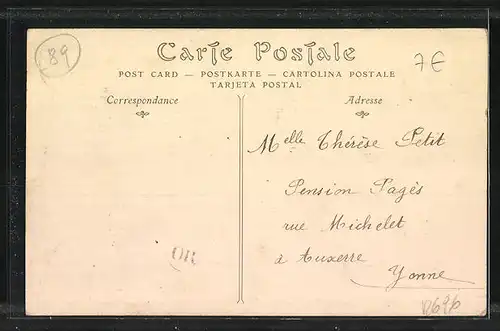 89
Carte Postale
7€
POST CARD — POSTKARTE — CARTOLINA POSTALE
TARJETA POSTAL
Correspondance
Adresse
Melle Thérèse Petit
Pension Pagès
rue Michelet
à Auxerre
Yonne
OR